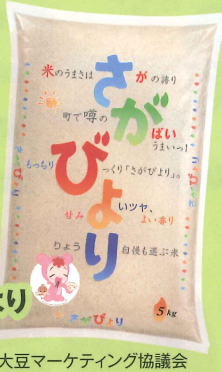 米のうまさは さがの誇り
町で噂の がばい
うまいっ!
もっちり びっくり「さがびより」。
甘み よいツヤ、
よい香り
りょうり自慢も選ぶ米
より
さがびより
5kg
大豆マーケティング協議会